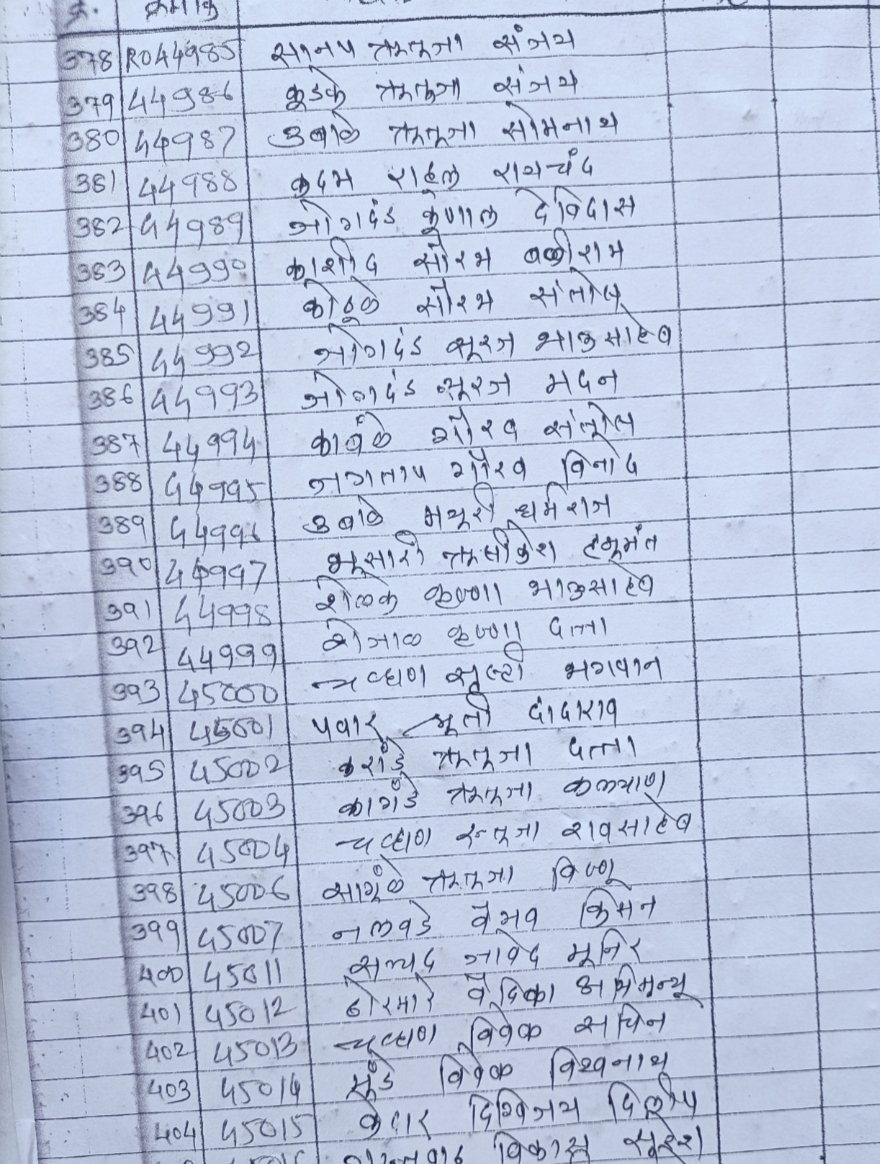 क्र. क्रमांक
378 R044985 सानप ऋतूजा संजय
379 44986 कुडके ऋतुजा संजय
380 44987 उबाळे ऋतूजा सोमनाथ
381 44988 कदम राहूल रायचंद
382 44989 जोगदंड कुणाल देविदास
383 44990 काशीद सौरभ बळीराम
384 44991 कोठुळे सौरभ संतोष
385 44992 जोगदंड सूरज भाऊसाहेब
386 44993 जोगदंड सूरज मदन
387 44994 काळे गौरव संतोष
388 44995 जगताप गौरव विनोद
389 44996 उबाळे मयुरी धर्मराज
390 44997 भूसारी ऋषीकेश हनूमंत
391 44998 शेळके कृष्णा भाऊसाहेब
392 44999 शेजाळ कृष्णा दत्ता
393 45000 चव्हाण सृष्टी भगवान
394 45001 पवार दादाराव
395 45002 करांडे ऋतूजा दत्ता
396 45003 ऋतूजा कल्याण
397 45004 चव्हाण ऋतूजा रावसाहेब
398 45006 सागुळे ऋतूजा विष्णू
399 45007 नलवडे वैभव किसन
400 45011 सय्यद जावेद मूनिर
401 45012 ढोरमारे वेदिका अभिमन्यू
402 45013 चव्हाण विवेक सचिन
403 45014 मुंडे विवेक विश्वनाथ
404 45015 केदार दिग्विजय दिलीप
विकास सूरेश